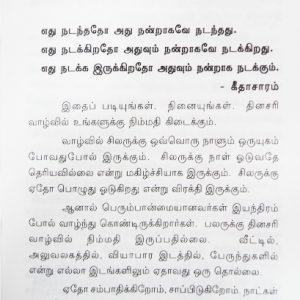 எது நடந்ததோ அது நன்றாகவே நடந்தது.
எது நடக்கிறதோ அதுவும் நன்றாகவே நடக்கிறது.
எது நடக்க இருக்கிறதோ அதுவும் நன்றாக நடக்கும்.
- கீதாசாரம்
இதைப் படியுங்கள். நினையுங்கள். தினசரி
வாழ்வில் உங்களுக்கு நிம்மதி கிடைக்கும்.
வாழ்வில் சிலருக்கு ஒவ்வொரு நாளும் ஒருயுகம்
போவதுபோல் இருக்கும். சிலருக்கு நாள் ஓடுவதே
தெரியவில்லை என்று மகிழ்ச்சியாக இருக்கும். சிலருக்கு
ஏதோ பொழுது ஓடுகிறது என்று விரக்தி இருக்கும்.
ஆனால் பெரும்பான்மையானவர்கள் இயந்திரம்
போல் வாழ்ந்து கொண்டிருக்கிறார்கள். பலருக்கு தினசரி
வாழ்வில் நிம்மதி இருப்பதில்லை. வீட்டில்,
அலுவலகத்தில், வியாபார இடத்தில், பேருந்துகளில்
என்று எல்லா இடங்களிலும் ஏதாவது ஒரு தொல்லை.
ஏதோ சம்பாதிக்கிறோம், சாப்பிடுகிறோம், நாட்கள்